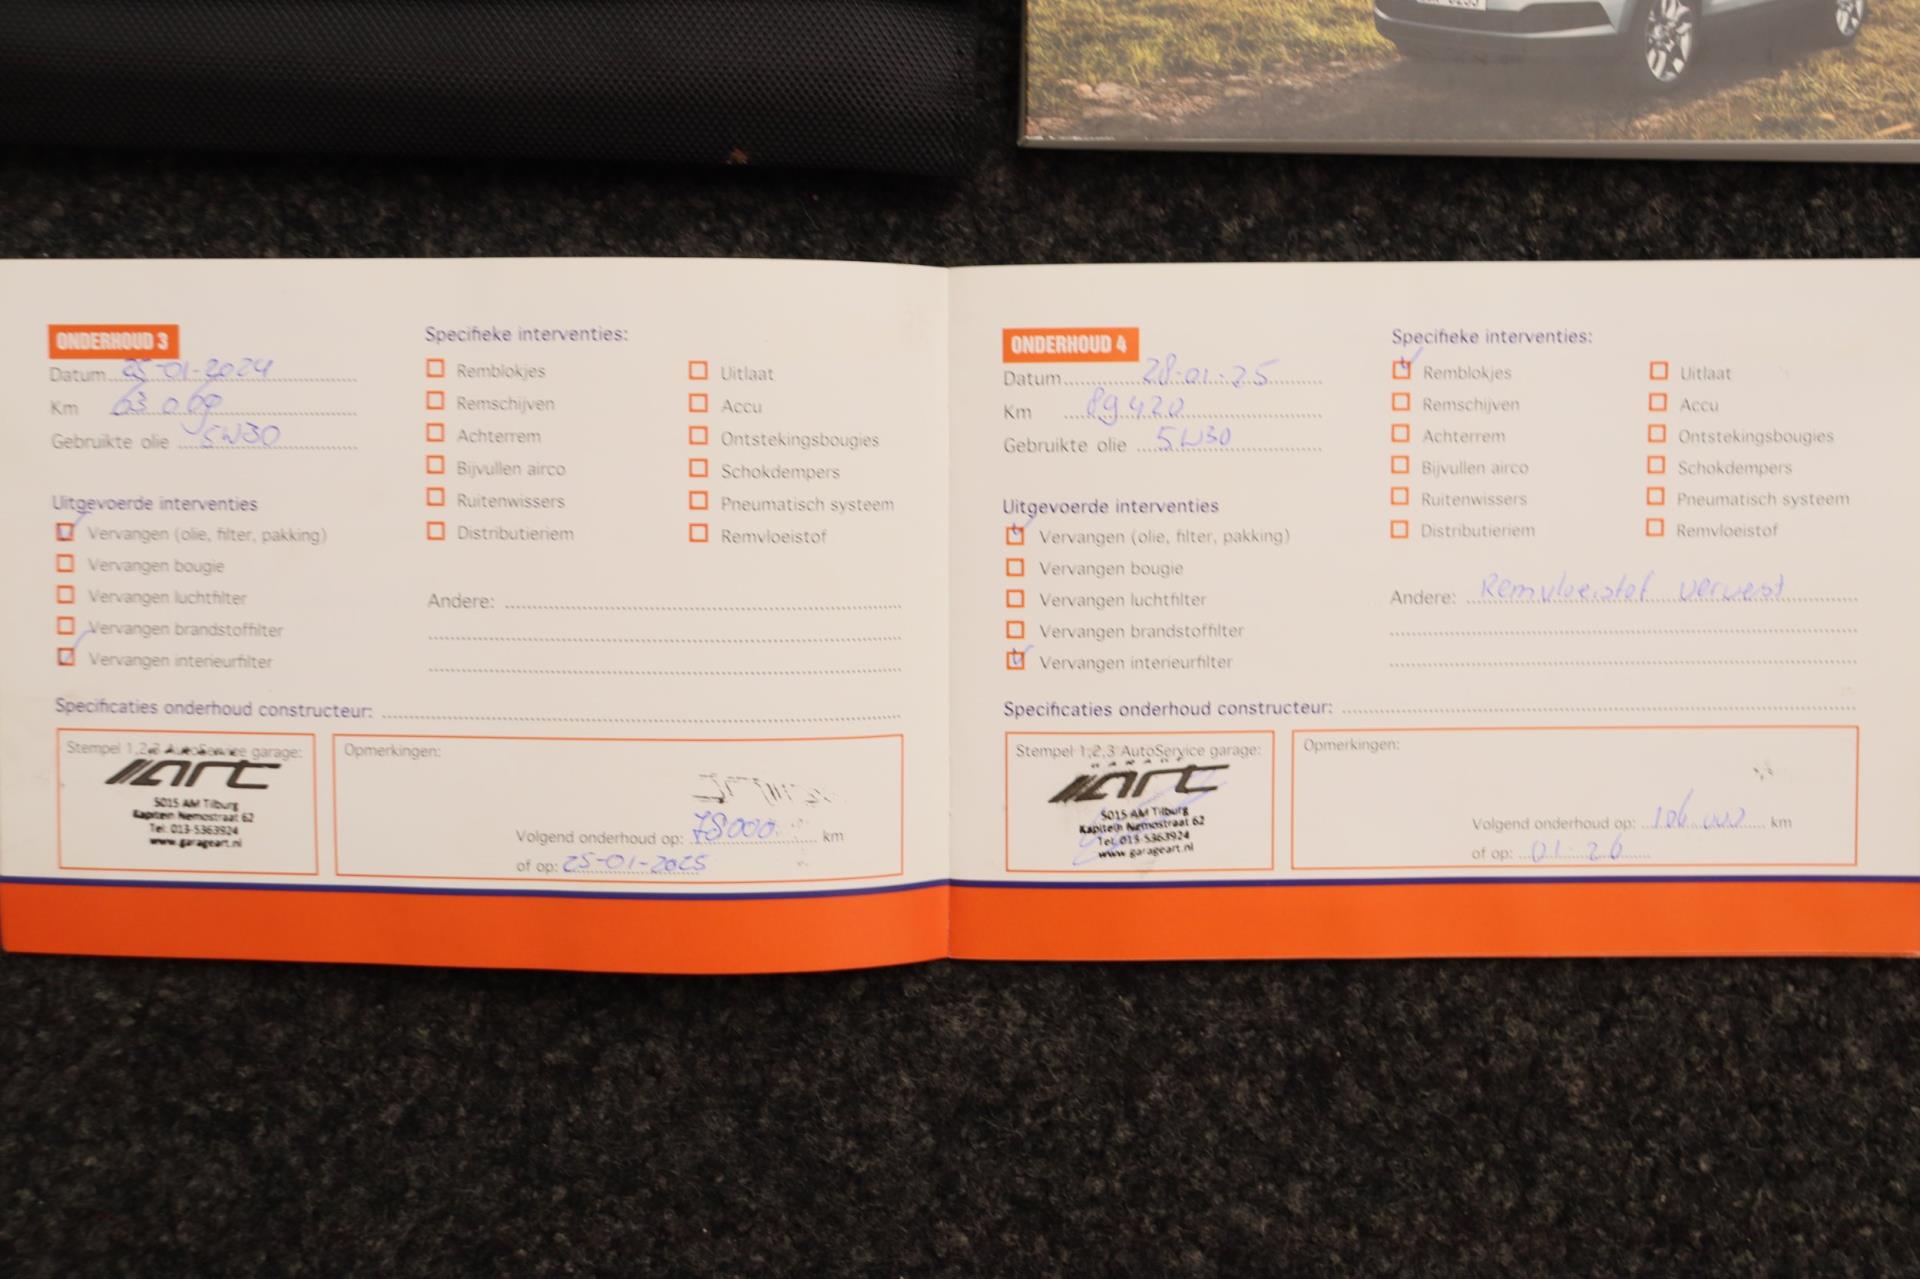 ONDERHOUD 3
Datum 25-01-2024
Km 63 069
Gebruikte olie 5W30
Uitgevoerde interventies
Vervangen (olie, filter, pakking)
Vervangen bougie
Vervangen luchtfilter
Vervangen brandstoffilter
Vervangen interieurfilter
Specifieke interventies:
Remblokjes
Remschijven
Achterrem
Bijvullen airco
Ruitenwissers
Distributieriem
Uitlaat
Accu
Ontstekingsbougies
Schokdempers
Pneumatisch systeem
Remvloeistof
Andere:
Specificaties onderhoud constructeur:
Stempel 1,2,3 AutoService garage:
art
5015 AM Tilburg
Kapitein Nemostraat 62
Tel. 013-5363924
www.garageart.nl
Opmerkingen:
Volgend onderhoud op: 78000 km
of op: 25-01-2025
ONDERHOUD 4
Datum 28-01-25
Km 89420
Gebruikte olie 5W30
Uitgevoerde interventies
Vervangen (olie, filter, pakking)
Vervangen bougie
Vervangen luchtfilter
Vervangen brandstoffilter
Vervangen interieurfilter
Specifieke interventies:
Remblokjes
Remschijven
Achterrem
Bijvullen airco
Ruitenwissers
Distributieriem
Uitlaat
Accu
Ontstekingsbougies
Schokdempers
Pneumatisch systeem
Remvloeistof
Andere: Remvloeistof ververst
Specificaties onderhoud constructeur:
Stempel 1,2,3 AutoService garage:
GARAGE
art
5015 AM Tilburg
Kapitein Nemostraat 62
Tel. 013-5363924
www.garageart.nl
Opmerkingen:
Volgend onderhoud op: 106.000 km
of op: 01-26